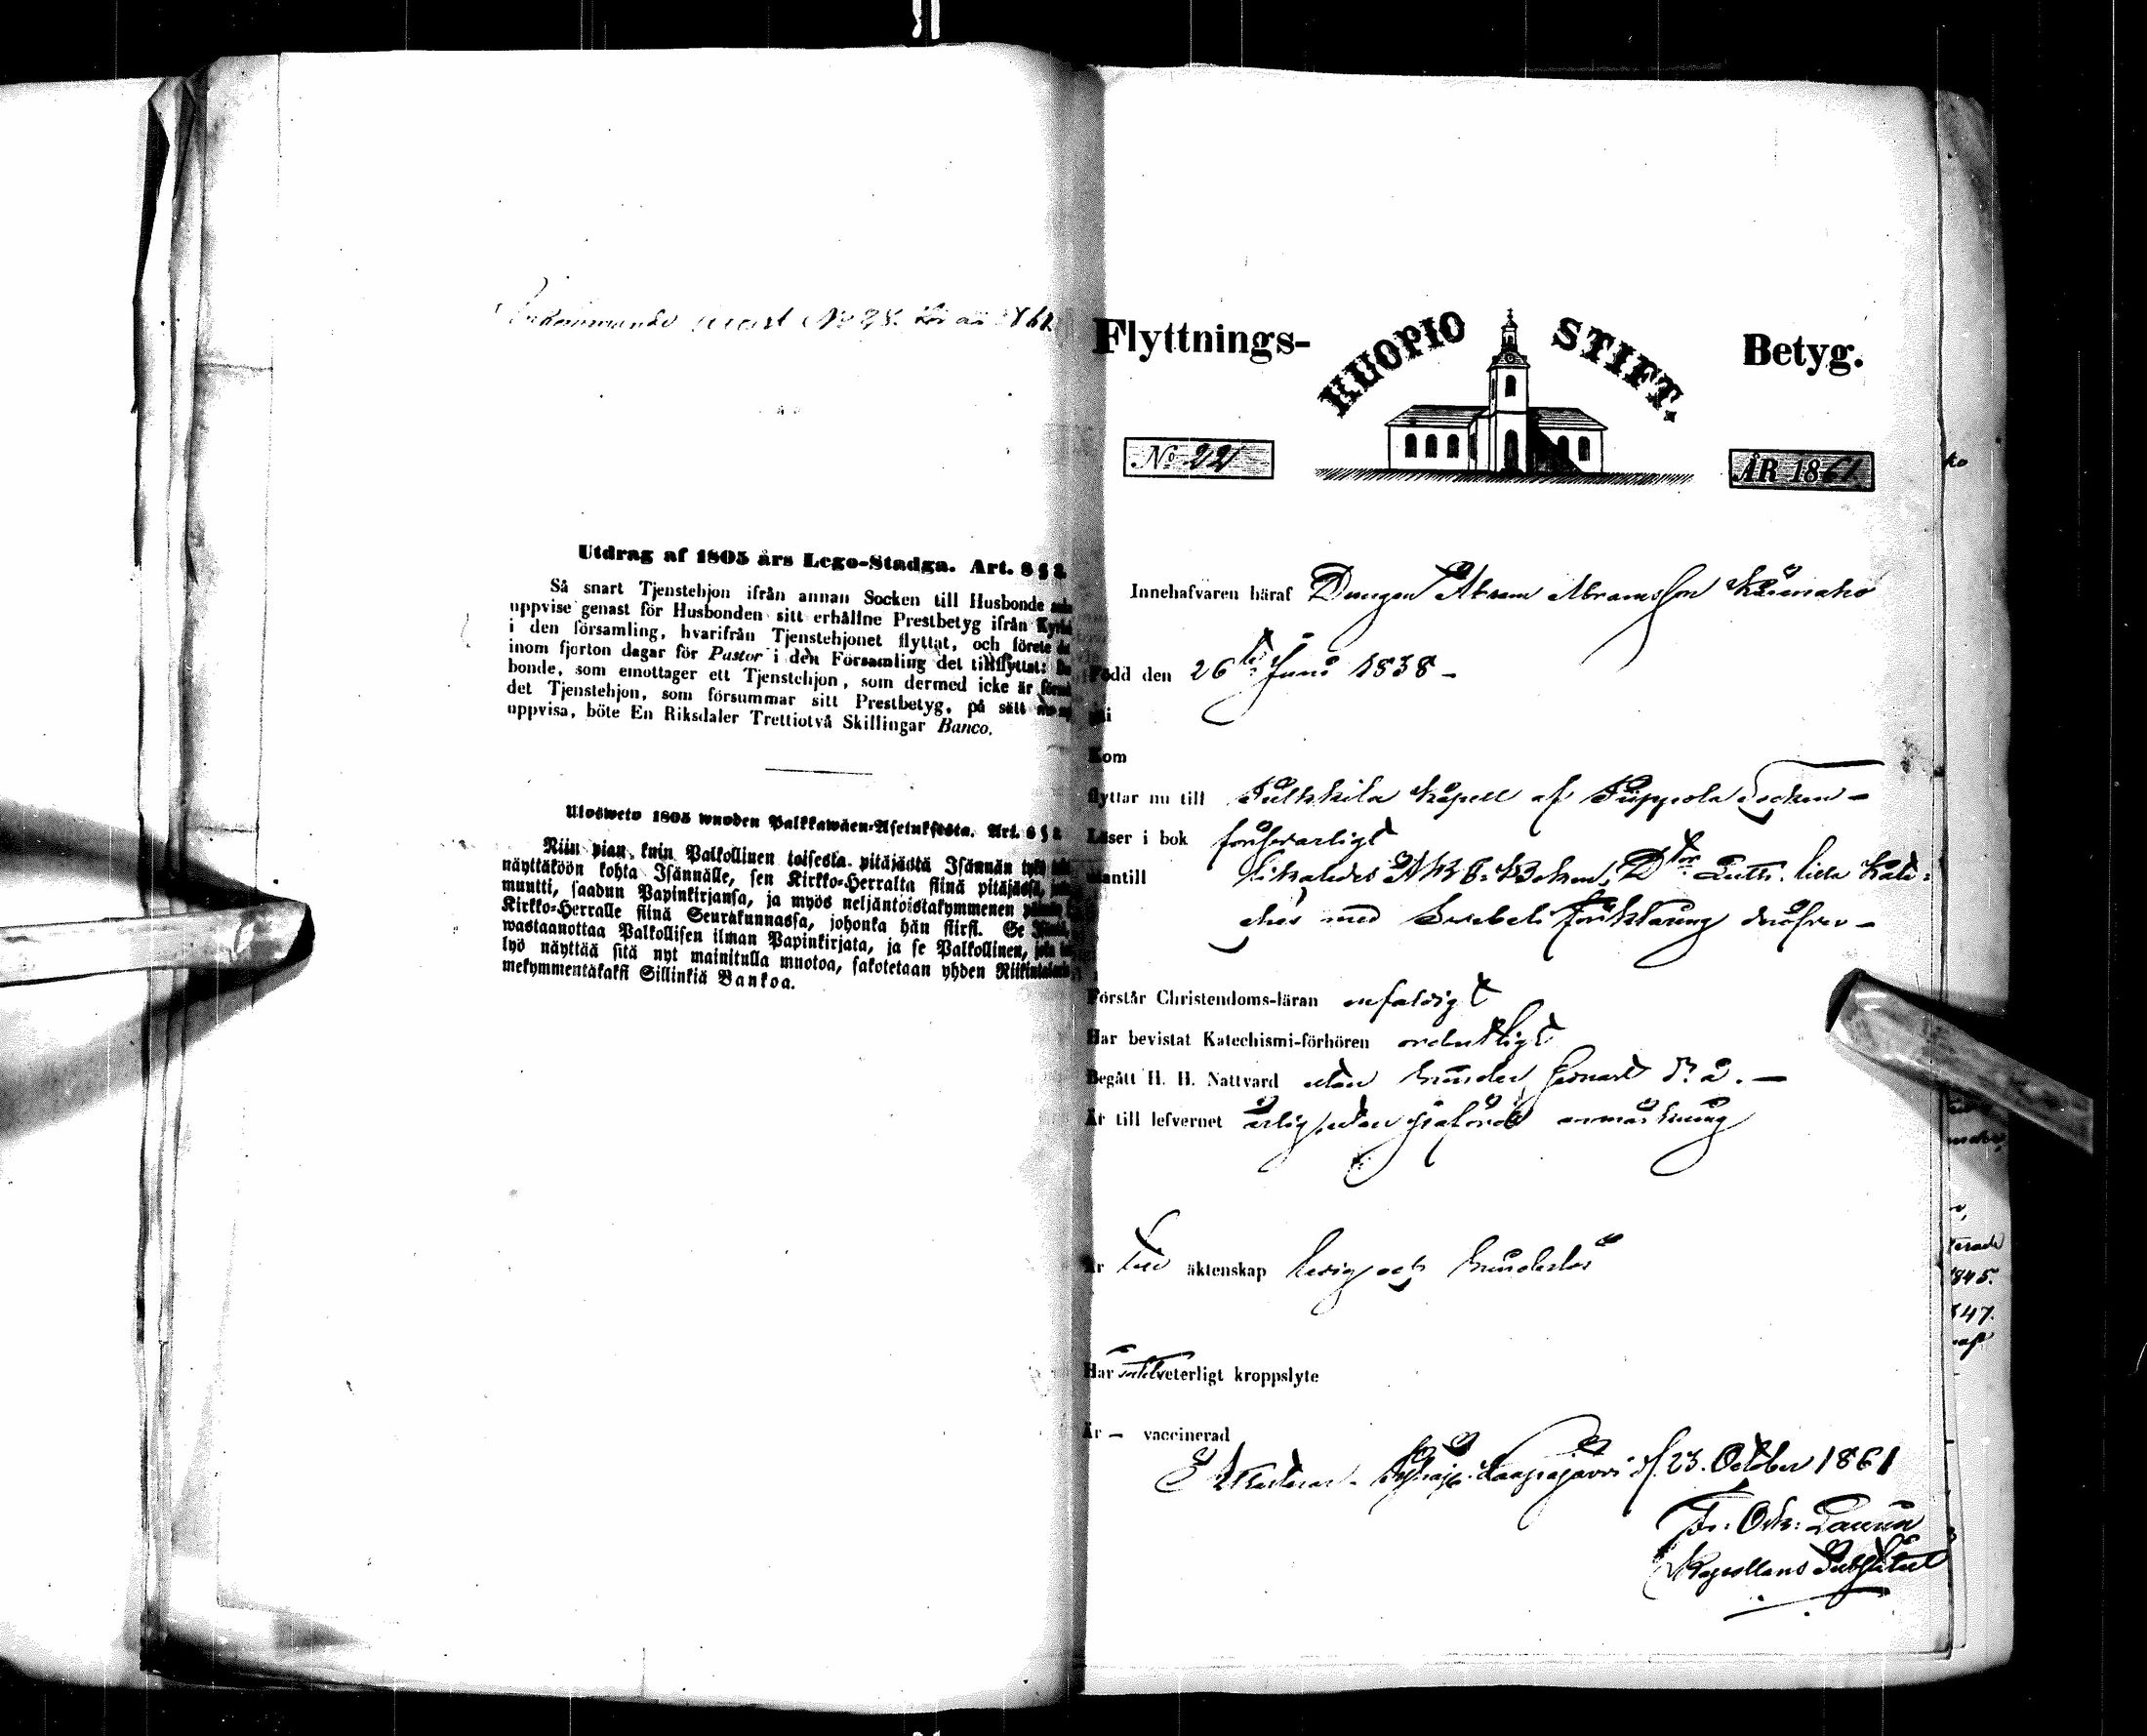 Inkommande attest No 28. för år 1861.
Utdrag af 1805 års Lego-Stadga. Art. 8 § 2
Så snart Tjenstehjon ifrån annan Socken till Husbonde
uppvise genast för Husbonden sitt erhållne Prestbetyg ifrån
i den församling, hvarifrån Tjenstehjonet flyttat, och förete
inom fjorton dagar för Pastor i den Församling det tillflyttat:
bonde, som emottager ett Tjenstehjon, som dermed icke är
det Tjenstehjon, som försummar sitt Prestbetyg, på sätt
uppvisa, böte En Riksdaler Trettiotvå Skillingar Banco.
Ulosweto 1805 wuoden Palkkawäen-Asetuksesta. Art. 8 § 2
Niin pian, kuin Palkollinen toisesta pitäjästä Isännän tykö
näyttäköön kohta Isännälle, sen Kirkko-Herralta siinä pitäjässä,
muutti, saadun Papinkirjansa, ja myös neljäntoistakymmenen
Kirkko-Herralle siinä Seurakunnassa, johonka hän siirsi. Se
wastaanottaa Palkollisen ilman Papinkirjata, ja se Palkollinen,
lyö näyttää sitä nyt mainitulla muotoa, sakotetaan yhden
mekymmentäkaksi Sillinkiä Bankoa.
Flyttnings- KUOPIO STIFT. Betyg.
No 22 ÅR 1861
Innehafvaren häraf Drengen Abram Abramsson
Född den 26te Juni 1838 -
i
Kom
flyttar nu till Pulkkila Kapell af Piippola Socken -
Läser i bok försvarligt
utantill likaledes A B C Boken, Dtor Luth. lilla Kate-
ches med Svebeli förklaring
Förstår Christendoms-läran enfaldigt
Har bevistat Katechismi-förhören ordentligt
Begått H. H. Nattvard utan hinder, senast d. å. -
Är till lefvernet ärlig, utan anmärkning
Är till äktenskap ledig och hinderlös
Har veterligt kroppslyte
Är - vaccinerad
Kaspajärvi d. 23. October 1861
Fr. Osk. Laurin
Kapellans Substitut